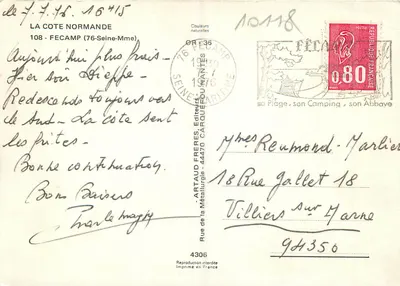 le 7.7.76 16h15
LA COTE NORMANDE
108 - FECAMP (76-Seine-Mme)
Aujourd'hui plus frais -
Hier soir Dieppe -
Redescendo toujours vers
le Sud - La côte sent
les frites -
Bonne continuation
Bons Baisers
Couleurs naturelles
OR - 36
ARTAUD FRERES, Editeurs
Rue de la Métallurgie - 44470 CARQUEFOU NANTES
4306
Reproduction interdite
Imprimé en France
10118
76 FECAMP
SEINE MARITIME
FECAMP
sa Plage, son Camping, son Abbaye
0,80
Mmes Reumond-Marlier
18 Rue Jallet 18
Villiers sur Marne
94350